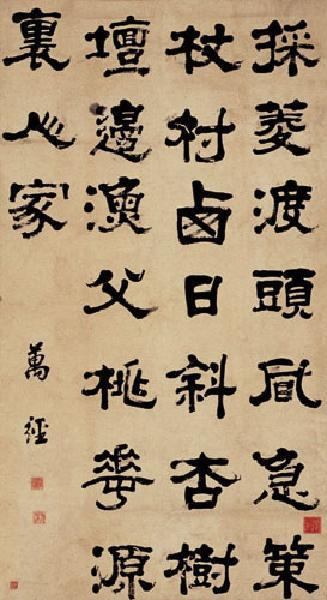 採菱渡頭風急策
杖村西日斜杏樹
壇邊漁父桃華源
裏人家
萬經